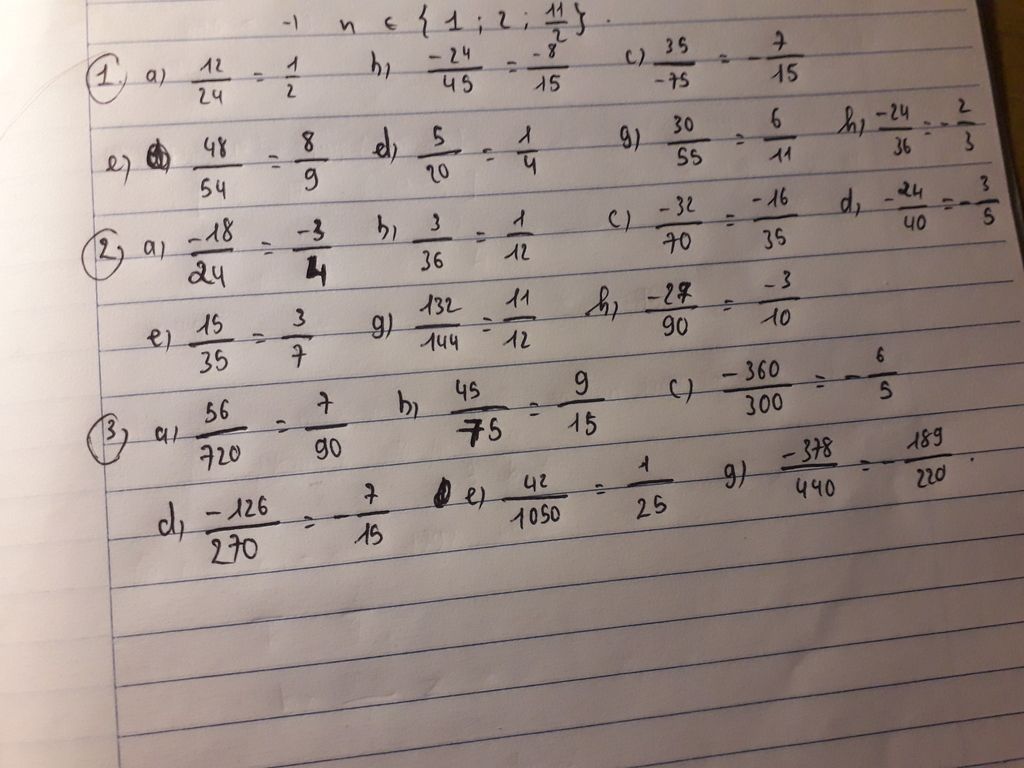 -1 n ∈ {1 ; 2 ; 11/2}.
1. a) 12/24 = 1/2 b, -24/45 = -8/15 c) 35/-75 = -7/15
e) 48/54 = 8/9 d, 5/20 = 1/4 g) 30/55 = 6/11 h, -24/36 = -2/3
2) a) -18/24 = -3/4 b, 3/36 = 1/12 c) -32/70 = -16/35 d, -24/40 = -3/5
e) 15/35 = 3/7 g) 132/144 = 11/12 h, -27/90 = -3/10
3) a, 56/720 = 7/90 b, 45/75 = 9/15 c) -360/300 = -6/5
d, -126/270 = -7/15 e) 42/1050 = 1/25 g) -378/440 = -189/220.